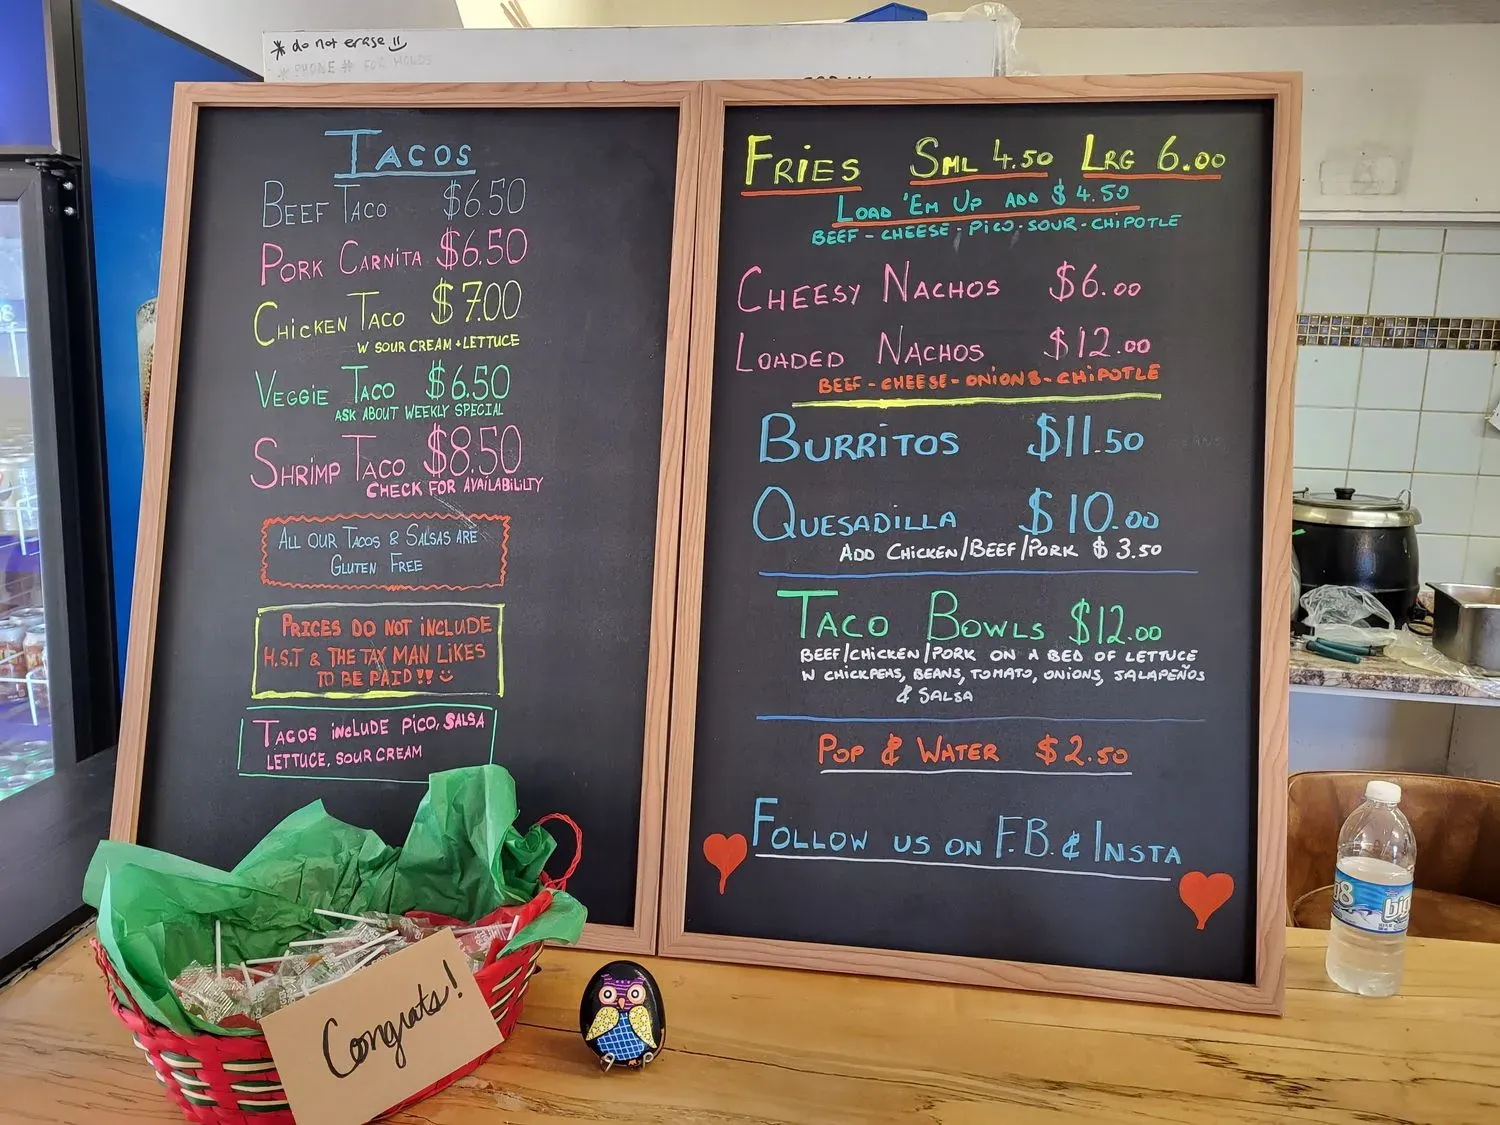 * do not erase!!
* PHONE # FOR HOLDS
TACOS
BEEF TACO $6.50
PORK CARNITA $6.50
CHICKEN TACO $7.00
W SOUR CREAM + LETTUCE
VEGGIE TACO $6.50
ASK ABOUT WEEKLY SPECIAL
SHRIMP TACO $8.50
CHECK FOR AVAILABILILTY
ALL OUR TACOS & SALSAS ARE
GLUTEN FREE
PRICES DO NOT iNCLUDE
H.S.T & THE TAX MAN LiKES
TO BE PAiD!!
TACOS iNCLUDE PiCO, SALSA
LETTUCE, SOUR CREAM
FRiES SML 4.50 LRG 6.00
LOAD 'EM UP ADD $4.50
BEEF - CHEESE - PiCO - SOUR - CHiPOTLE
CHEESY NACHOS $6.00
LOADED NACHOS $12.00
BEEF - CHEESE - ONiONS - CHiPOTLE
BURRiTOS $11.50
QUESADiLLA $10.00
ADD CHiCKEN/BEEF/PORK $3.50
TACO BOWLS $12.00
BEEF/CHiCKEN/PORK ON A BED OF LETTUCE
W CHICKPEAS, BEANS, TOMATO, ONiONS, JALAPEÑOS
& SALSA
POP & WATER $2.50
FOLLOW US ON F.B. & INSTA
Congrats!
big8